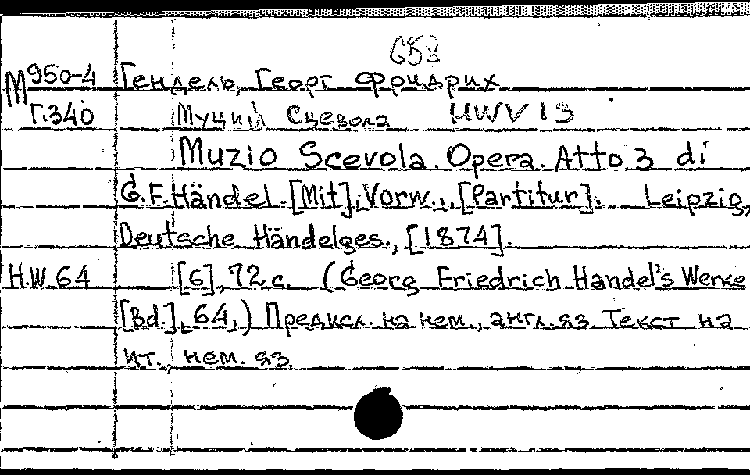 658
М950-4 Гендель, Георг Фридрих
Г.340 Муций Сцевола HWV 13
Muzio Scevola. Opera. Atto 3 di
G.F. Händel. [Mit], Vorw., [Partitur]. Leipzig,
Deutsche Händelges., [1874].
H.W. 64 [6], 72.с. (Georg Friedrich Handel's Werke
[Bd.], 64,) Предисл. на нем., англ. яз. Текст на
ит. нем. яз.